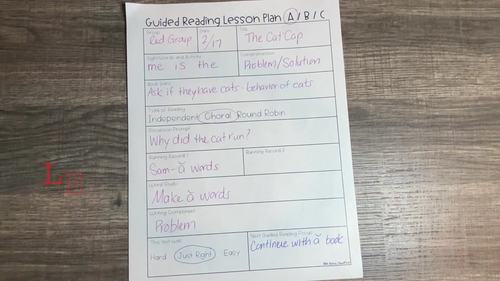 Guided Reading Lesson Plan A / B / C
Group
Red Group
Date
2/17
Title
The Cat Cap
me is the
Comprehension
Problem/Solution
Book Intro
Ask if they have cats - behavior of cats
Type of Reading
Independent Choral Round Robin
Discussion Prompt
Why did the cat run?
Running Record 1
Sam - ă words
Running Record 2
Word Study
Make ă words
Writing Component
Problem
This text was:
Hard Just Right Easy
Next Guided Reading Focus:
Continue with ă book
L